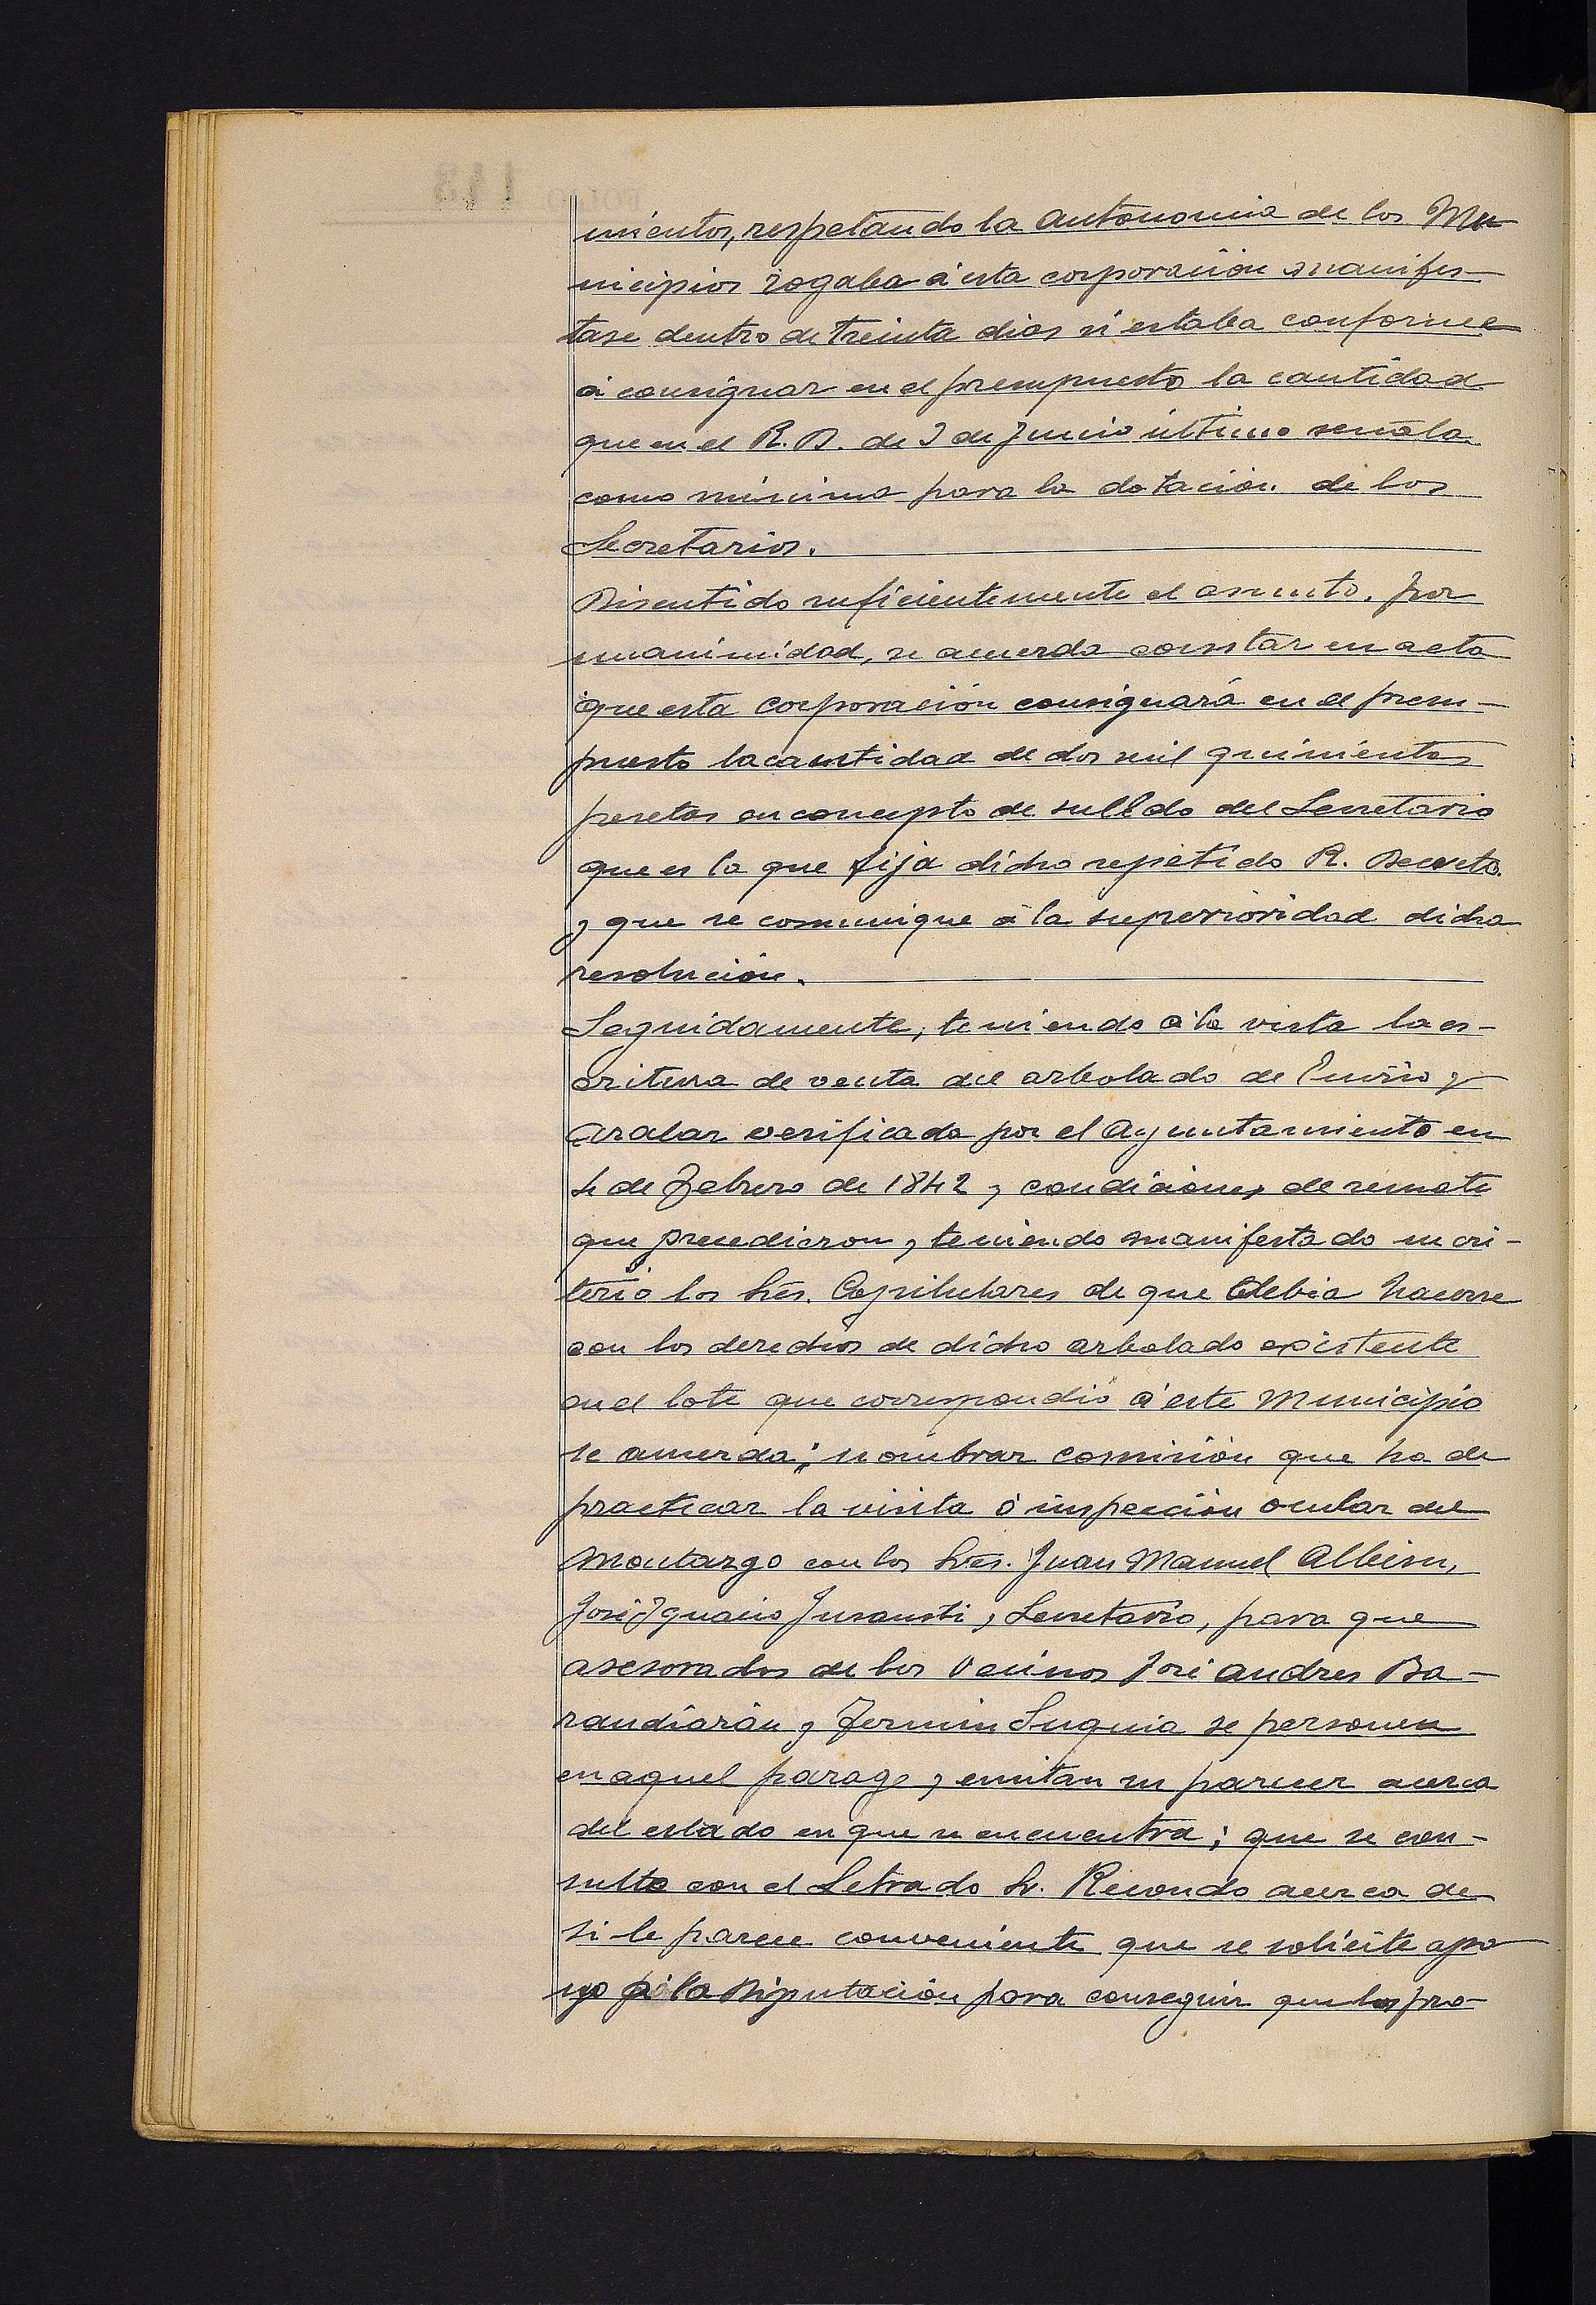 mientos, respetando la autonomia de los Mu
nicipios rogaba á esta corporación manifes-
tase dentro de treinta dias si estaba conforme
á consignar en el presupuesto la cantidad
que en el R. D. de 3 de Junio último señala
como minimo para la dotación de los
Secretarios.
Discutido suficientemente el asunto, por
unanimidad, se acuerda constar en acta
que esta corporación consignará en el presu-
puesto la cantidad de dos mil quinientas
pesetas en concepto de sueldo del Secretario
que es la que fija dicho repetido R. Decreto.
y que se comunique á la superrioridad dicha
resolución.
Seguidamente, teniendo á la vista la es-
critura de venta del arbolado de Enirio y
Aralar verificada por el Ayuntamiento en
4 de Febrero de 1842 y condiciones de remate
que precedieron y teniendo manifestado su cri-
terio los Sres. Capitulares de que debia hacerse
con los derechos de dicho arbolado existente
en el lote que correspondió á este Municipio
se acuerda; nombrar comisión que ha de
practicar la visita ó inspección ocular del
montazgo con los Sres. Juan Manuel Albisu,
José Ignacio Jusausti y Secretario, para que
asesorados de los vecinos José Andres Ba-
randiarán y Fermin Suquia se personen
en aquel parage y emitan su parecer acerca
del estado en que se encuentra; que se con-
sulte con el Letrado Sr. Recondo acerca de
si le parece conveniente que se solicite apo
yo á la Diputación para conseguir que los pro-